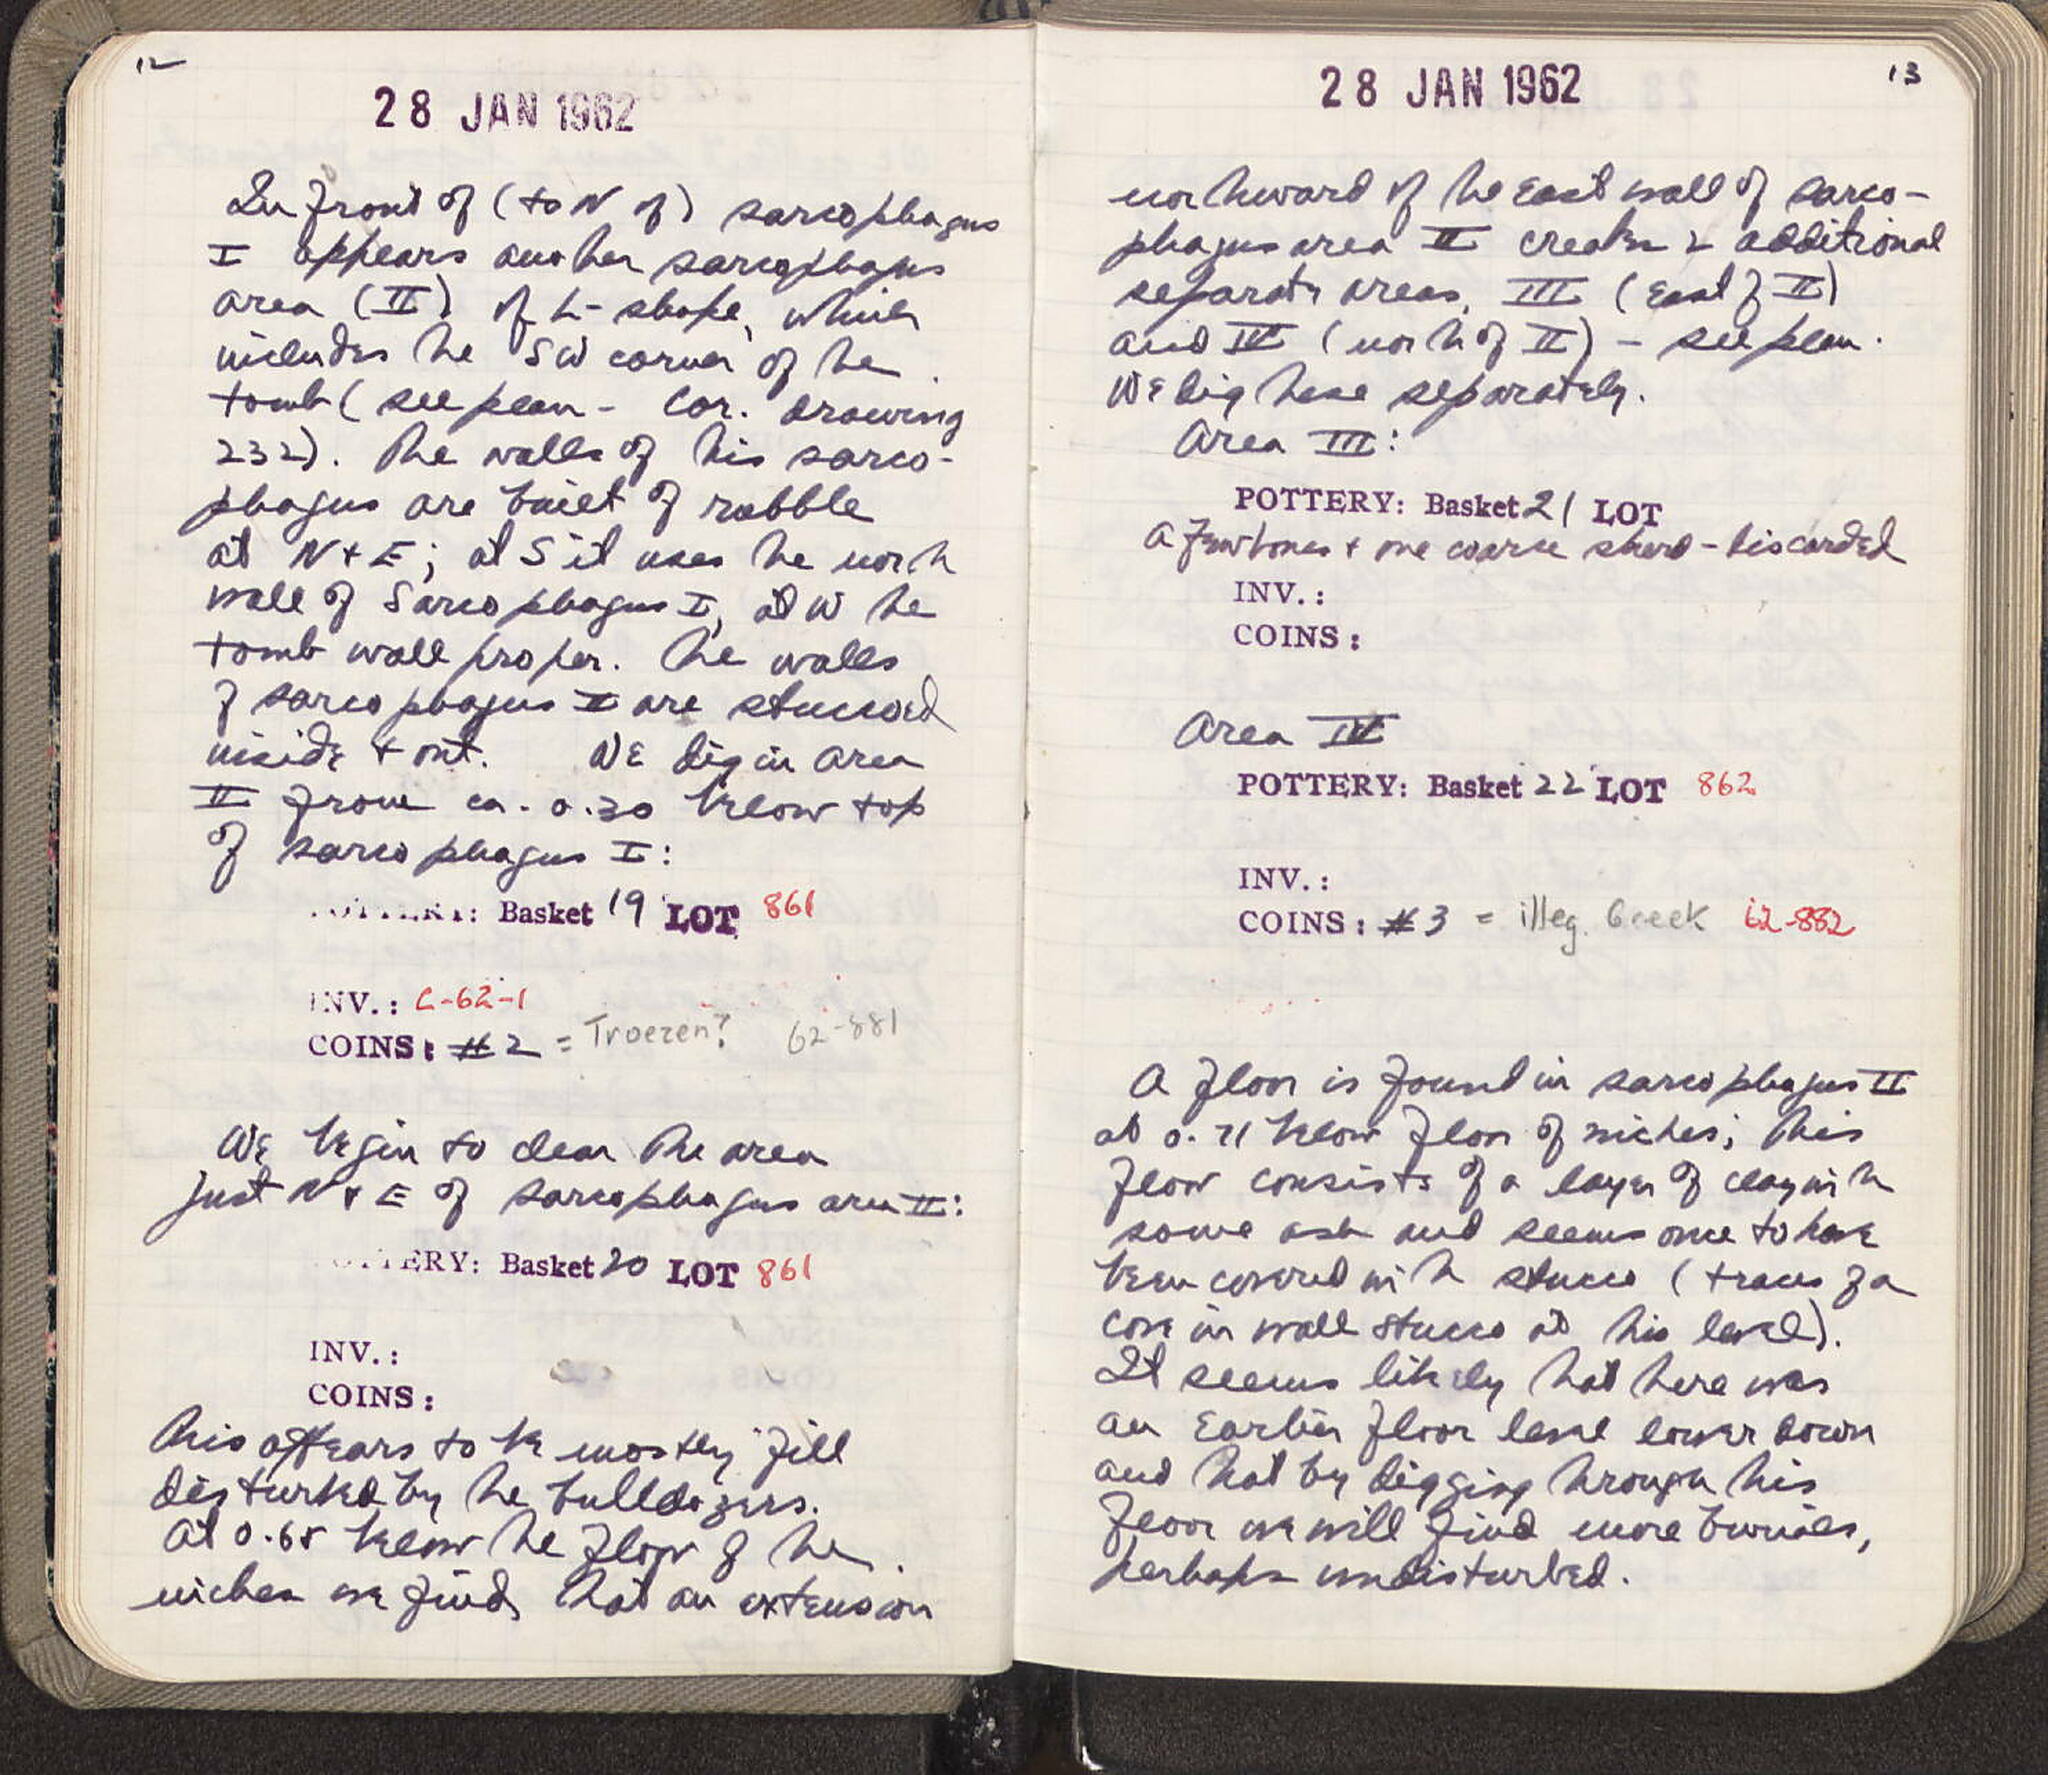 12
28 JAN 1962
In front of (to N of) sarcophagus
I appears another sarcophagus
area (II) of L-shape, which
includes the SW corner of the
tomb (see plan - Cor. drawing
232). The walls of this sarco-
phagus are built of rubble
at N + E; at S it uses the north
wall of Sarcophagus I, at W the
tomb wall proper. The walls
of sarcophagus II are stuccoed
inside + out. We dig in area
II from ca. 0.30 below top
of sarcophagus I:
POTTERY: Basket 19 LOT 861
INV.: C-62-1
COINS: #2 = Troezen? 62-881
We begin to clear the area
just N + E of sarcophagus area II:
POTTERY: Basket 20 LOT 861
INV.:
COINS:
This appears to be mostly fill
disturbed by the bulldozers.
At 0.65 below the floor of the
niches we find that an extension
13
28 JAN 1962
northward of the East wall of sarco-
phagus area II creates 2 additional
separate areas, III (East of II)
and IV (north of II) - see plan.
We dig these separately.
Area III:
POTTERY: Basket 21 LOT
A few bones + one coarse sherd - discarded
INV.:
COINS:
Area IV
POTTERY: Basket 22 LOT 862
INV.:
COINS: #3 = illeg. Greek 62-882
A floor is found in sarcophagus II
at 0.71 below floor of niches; this
floor consists of a layer of clay with
some ash and seems once to have
been covered with stucco (traces of a
cove in wall stucco at this level).
It seems likely that there was
an earlier floor level lower down
and that by digging through this
floor we will find more burials,
perhaps undisturbed.